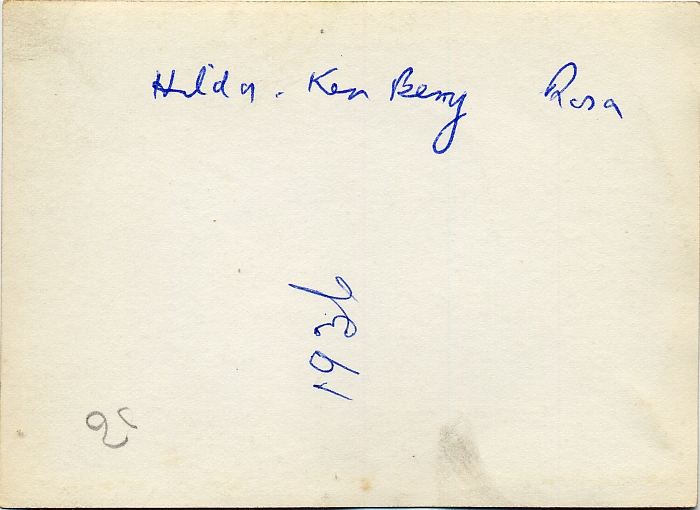 Hilda . Ken Berry Rosa
1936